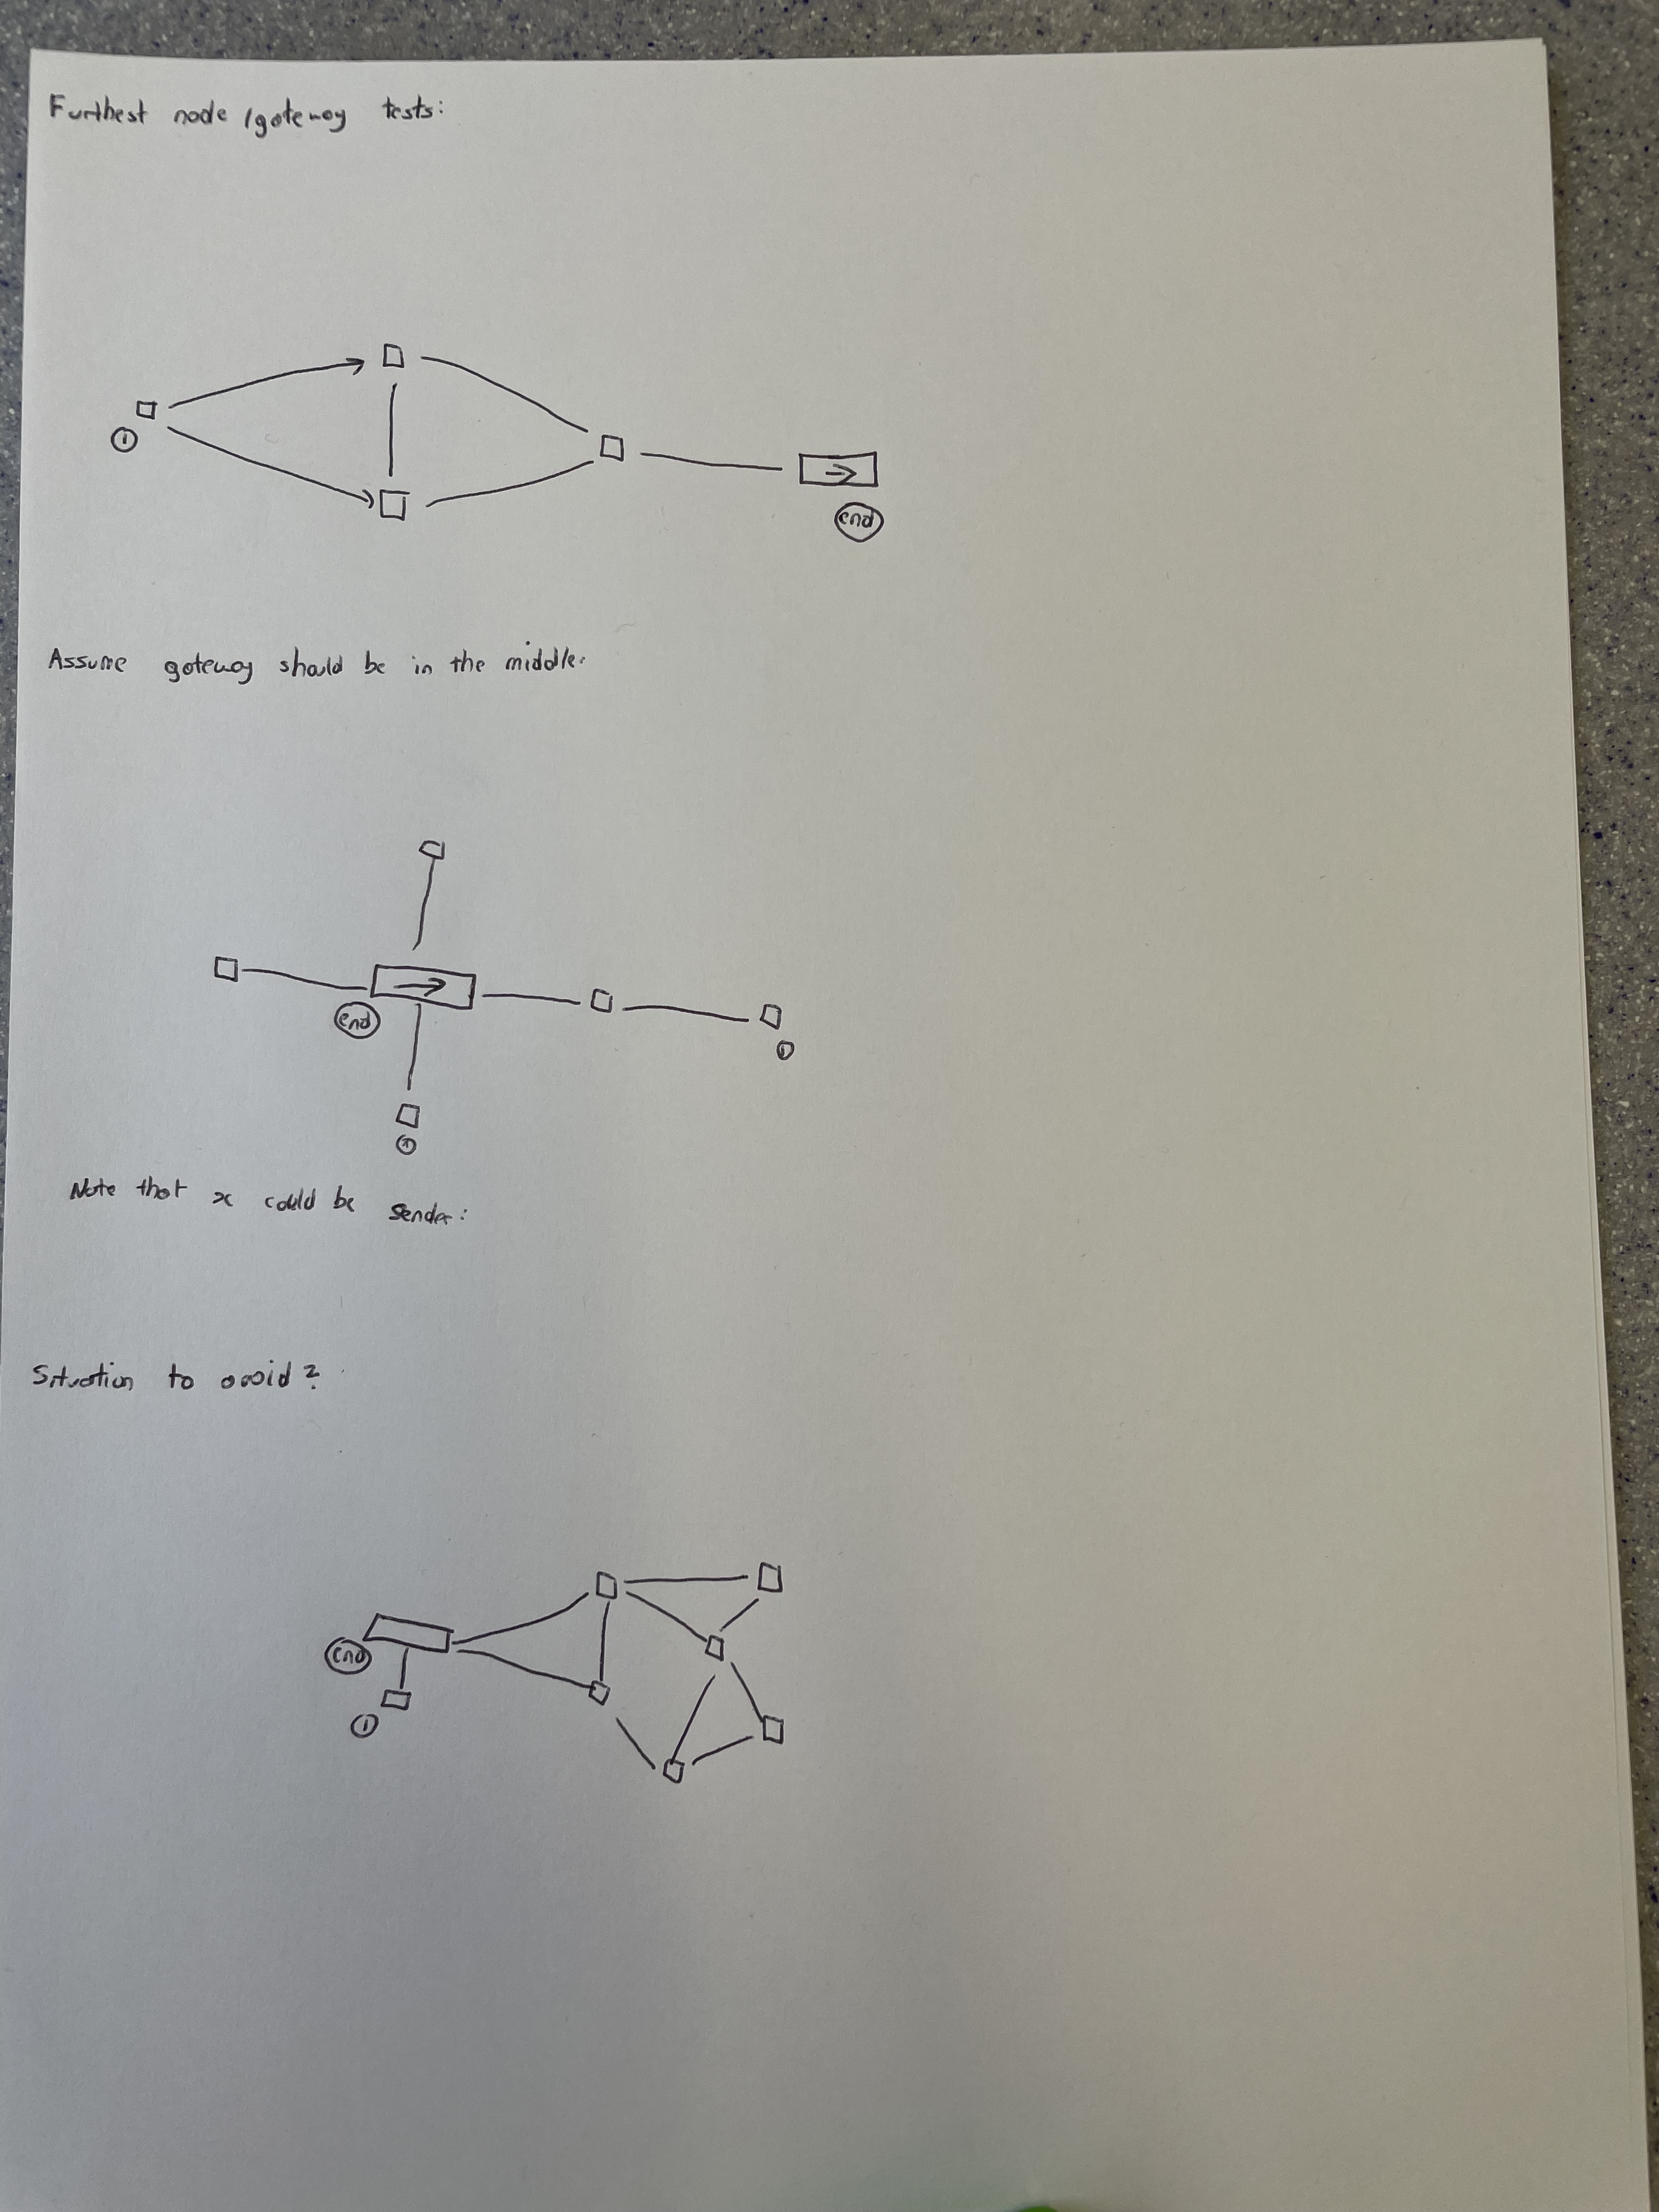 Furthest node / gateway tests:
①
end
Assume gateway should be in the middle.
end
①
Note that x could be sender:
Situation to avoid?
end
①